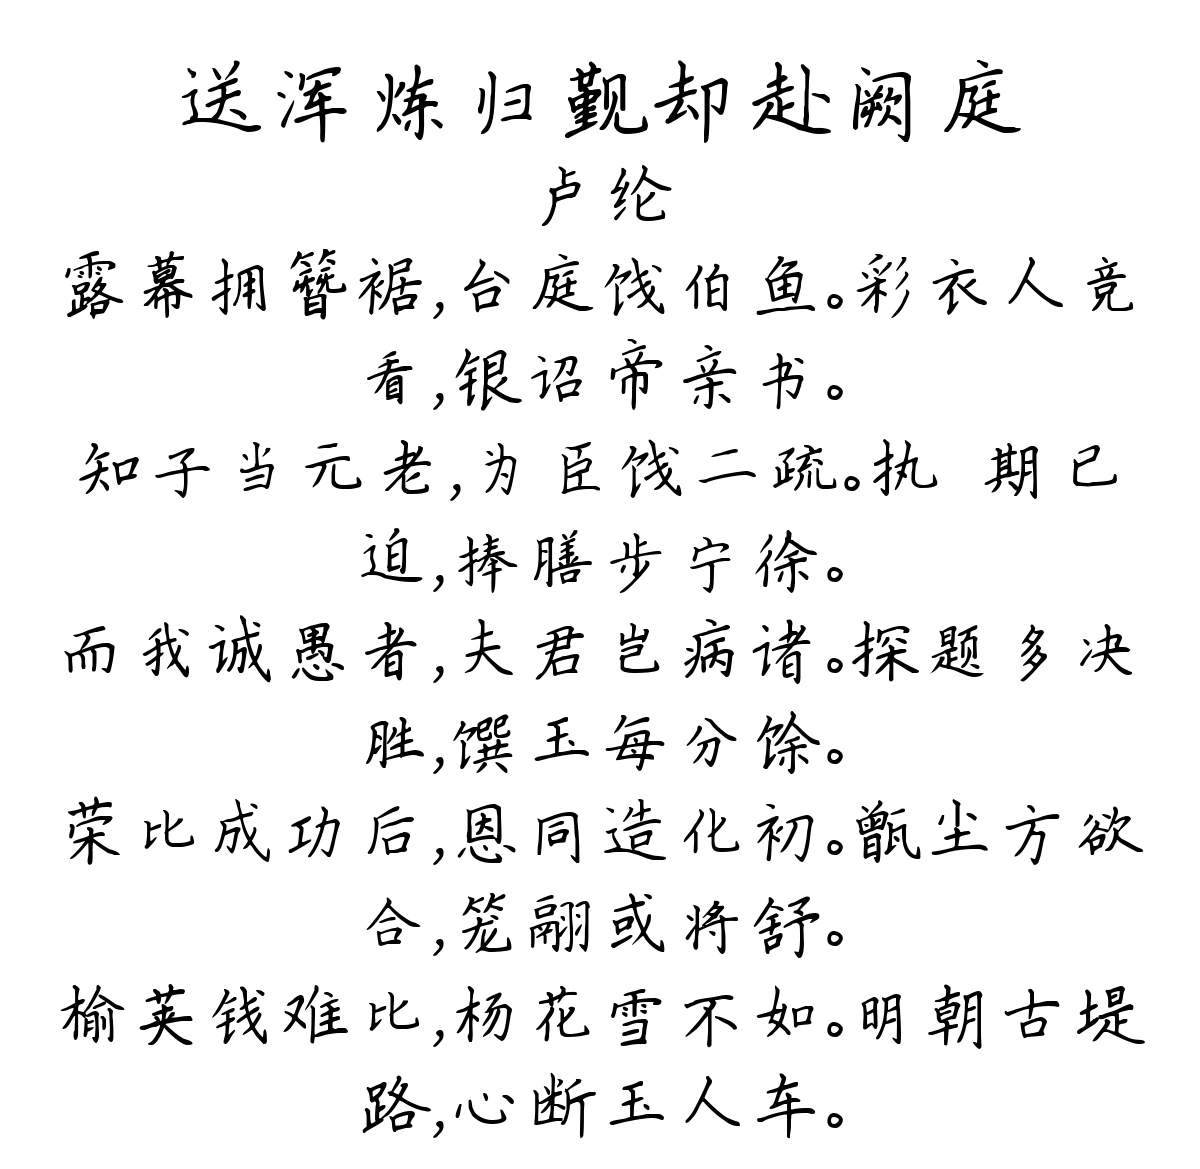 送浑炼归觐却赴阙庭
卢纶
露幕拥簪裾,台庭饯伯鱼。彩衣人竞
看,银诏帝亲书。
知子当元老,为臣饯二疏。执 期已
迫,捧膳步宁徐。
而我诚愚者,夫君岂病诸。探题多决
胜,馔玉每分馀。
荣比成功后,恩同造化初。甑尘方欲
合,笼翮或将舒。
榆荚钱难比,杨花雪不如。明朝古堤
路,心断玉人车。